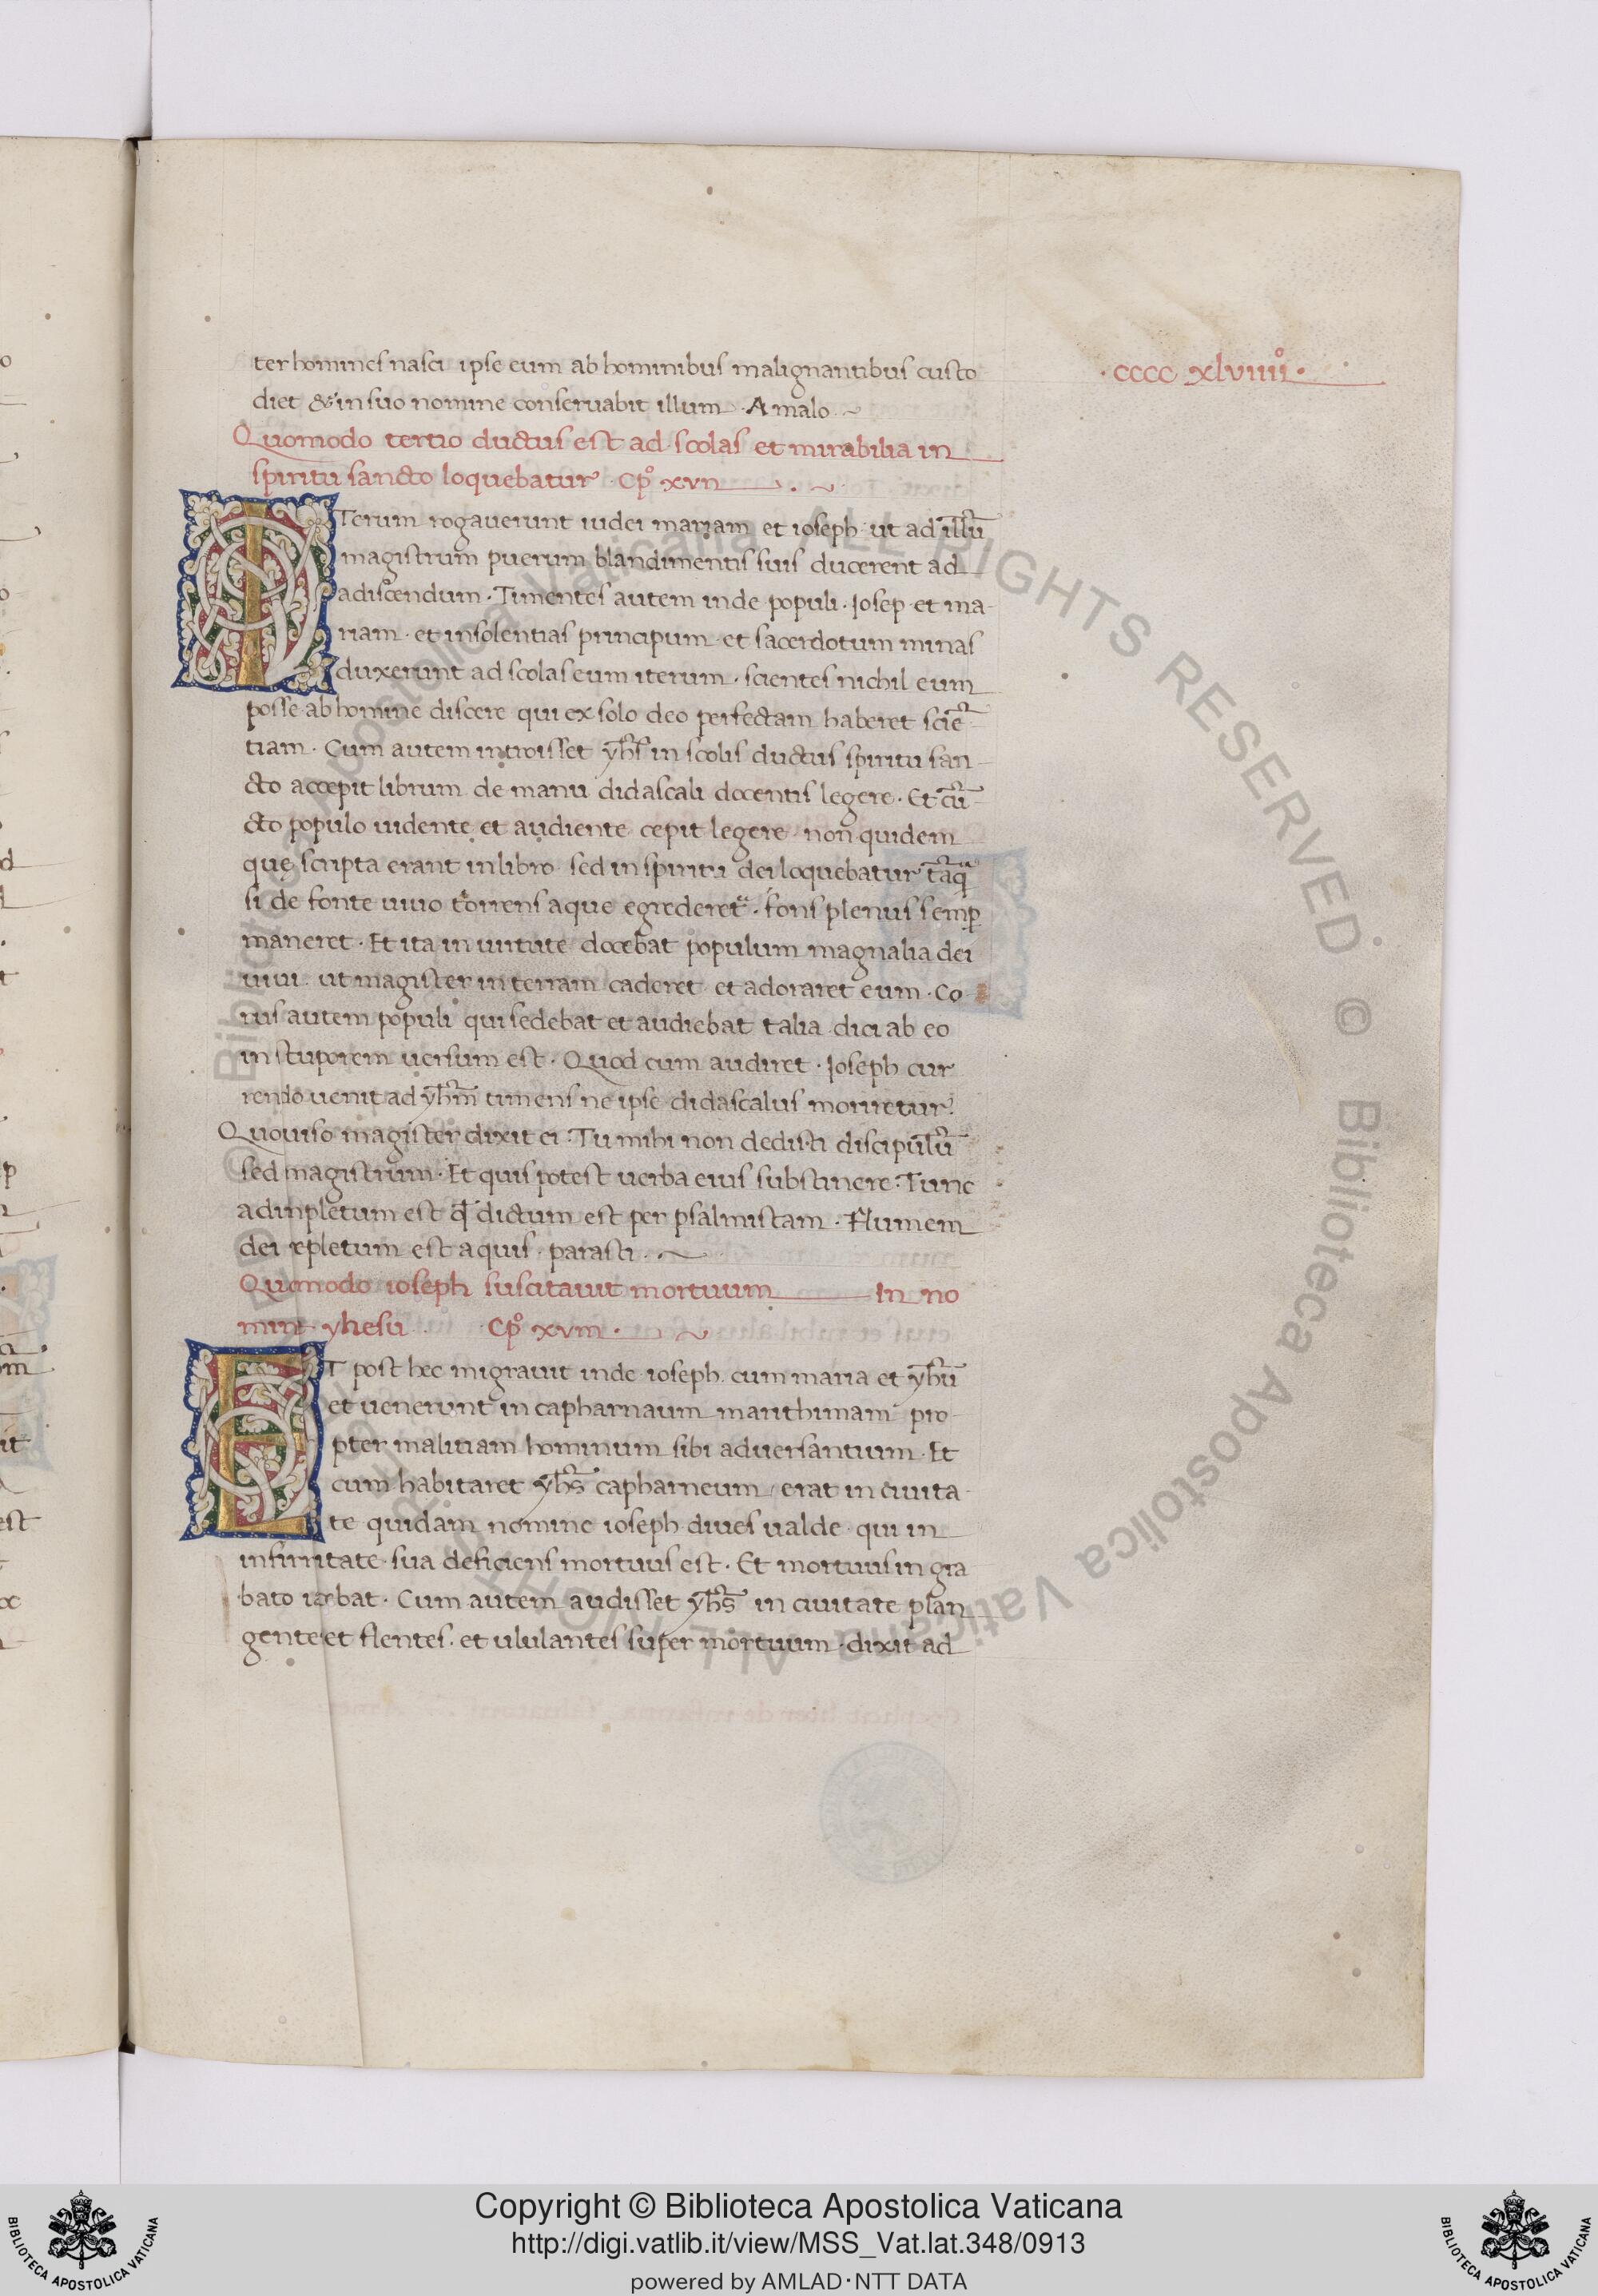 ter homines nasci ipse eum ab hominibus malignantibus custo
diet & in suo nomine conseruabit illum · A malo ·~
·cccc xlviiii°·
Quomodo tertio ductus est ad scolas et mirabilia in
spiritu sancto loquebatur · Cp° xvii · ~
ITerum rogauerunt iudei mariam et ioseph ut ad illū
magistrum puerum blandimentis suis ducerent ad
adiscendum · Timentes autem inde populi · Iosep · et ma-
riam · et insolentias principum · et sacerdotum minas
duxerunt ad scolas eum iterum · scientes nichil eum
posse ab homine discere qui ex solo deo perfectam haberet sciē-
tiam · Cum autem introisset yhs̄ in scolis ductus spiritu san-
cto accepit librum de manu didascali docentis legere · Et cū-
cto populo uidente et audiente cepit legere · non quidem
que scripta erant in libro · sed in spiritu dei loquebatur tāqᵃ
si de fonte uiuo torrens aque egrederet᷑ · fons plenus semꝑ
maneret · Et ita in uirtute docebat populum magnalia dei
uiui · ut magister in terram caderet · et adoraret eum · Co
rus autem populi qui sedebat et audiebat talia dici ab eo
in stuporem uersum est · Quod cum audiret · Ioseph cur
rendo uenit ad yhm̄ timens ne ipse didascalus moriretur ·
Quo uiso magister dixit ei : Tu mihi non dedisti discipulū
sed magistrum · Et quis potest uerba eius substinere : Tunc
adinpletum est qđ dictum est per psalmistam · Flumem
dei repletum est aquis · parasti · ~
Quomodo ioseph suscitauit mortuum In no
mine yhesu · Cp° xviii · ~
ET post hec migrauit inde ioseph cum maria et yhū
et uenerunt in capharnaum marithimam pro-
pter malitiam hominum sibi aduersantium · Et
cum habitaret yhs̄ capharneum / erat in ciuita-
te quidam nomine ioseph diues ualde · qui in
infirmitate sua deficiens mortuus est · Et mortuus in gra
bato iacebat · Cum autem audisset yhs̄ in ciuitate plan
gente et flentes · et ululantes super mortuum · dixit ad
Copyright © Biblioteca Apostolica Vaticana
http://digi.vatlib.it/view/MSS_Vat.lat.348/0913
powered by AMLAD·NTT DATA
BIBLIOTECA APOSTOLICA VATICANA
BIBLIOTECA APOSTOLICA VATICANA